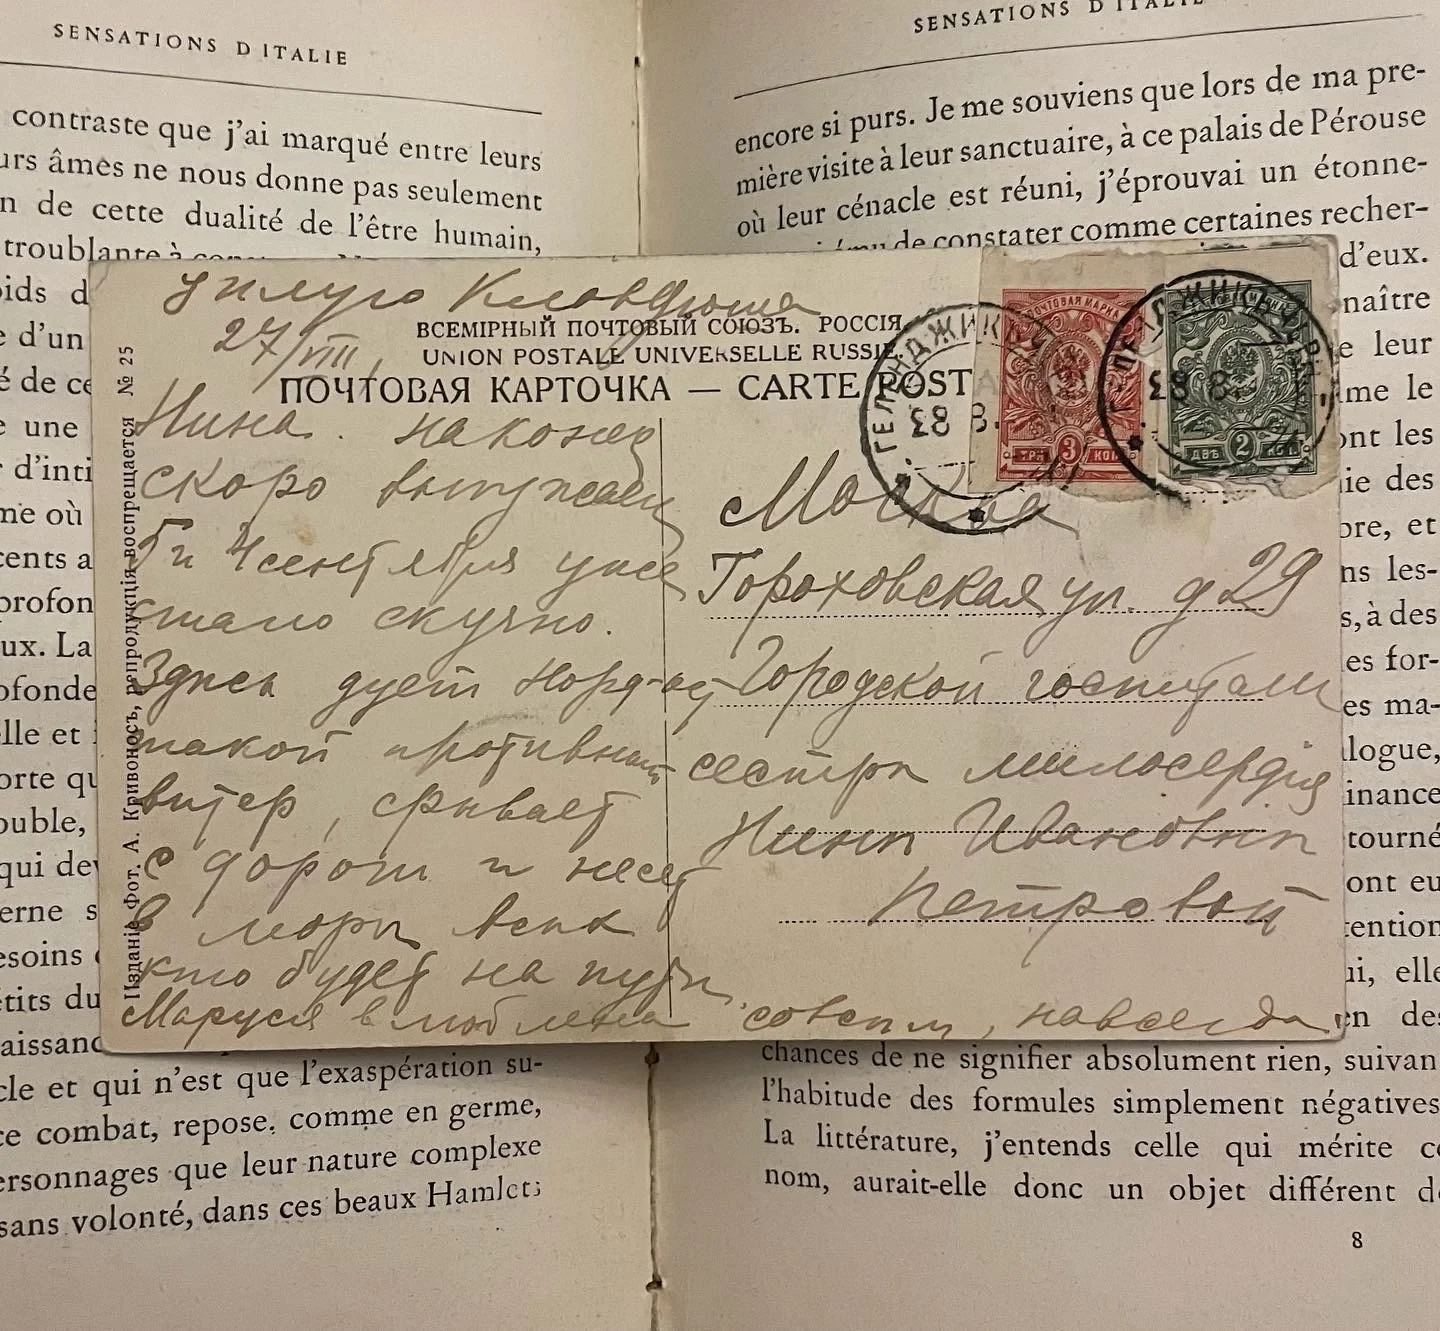 SENSATIONS D'ITALIE
contraste que j'ai marqué entre leurs
urs âmes ne nous donne pas seulement
n de cette dualité de l'être humain,
troublante à
oids d
e d'un
é de ce
e une
t d'inti
me où
cents a
profon
ux. La
ofonde
elle et
orte qu
ouble,
qui dev
erne s
esoins
étits du
aissanc
cle et qui n'est que l'exaspération su-
ce combat, repose, comme en germe,
ersonnages que leur nature complexe
sans volonté, dans ces beaux Hamlets
SENSATIONS D'ITALIE
encore si purs. Je me souviens que lors de ma pre-
mière visite à leur sanctuaire, à ce palais de Pérouse
où leur cénacle est réuni, j'éprouvai un étonne-
ému de constater comme certaines recher-
d'eux.
naître
e leur
me le
ont les
ie des
bre, et
ns les-
s, à des
es for-
es ma-
logue,
inance
tourné
ont eu
tention
ui, elle
en des
chances de ne signifier absolument rien, suivan
l'habitude des formules simplement négatives
La littérature, j'entends celle qui mérite ce
nom, aurait-elle donc un objet différent de
8
27/VIII,
ВСЕМІРНЫЙ ПОЧТОВЫЙ СОЮЗЪ. РОССІЯ.
UNION POSTALE UNIVERSELLE RUSSIE.
ПОЧТОВАЯ КАРТОЧКА — CARTE POSTA
Изданіе фот. А. Кривоносъ, репродукція воспрещается № 25
Нина. наконец
скоро
и 4 сентября уже
стало скучно.
Здесь дует Норд-ост
такой противный
ветер, срывает
с дороги и несет
в море всех
кто будет на пути.
Маруся влюблена совсем, навсегда
Москва
Гороховская ул. д 29
Городской госпиталь
сестре милосердия
Нине Ивановне
Петровой
ПОЧТОВАЯ МАРКА
ТРИ 3 КОП.
ДВѢ 2 КОП.
ГЕЛЕНДЖИКЪ
ГЕЛЕНДЖИКЪ